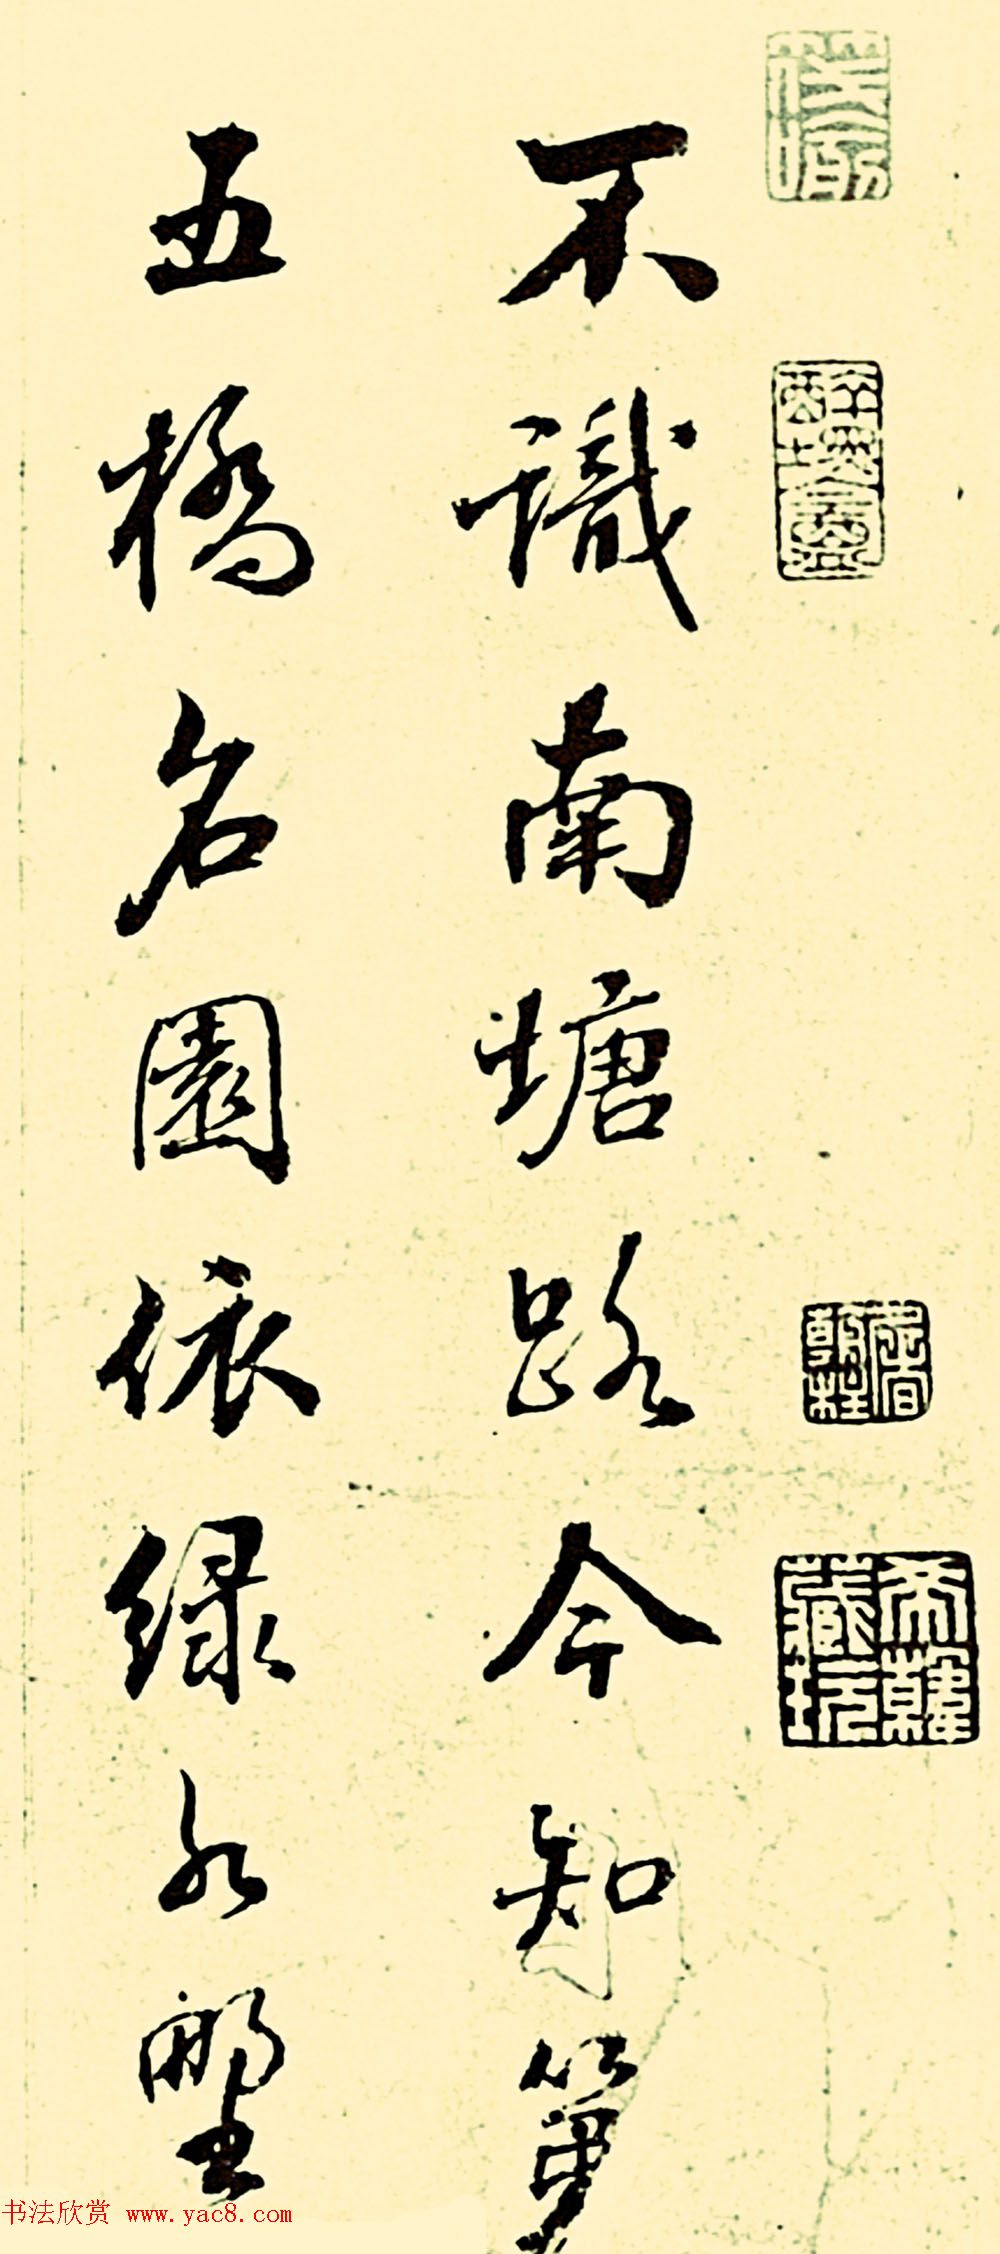 不識南塘路今知第
五橋名園依綠水野
希韓
藏玩
书法欣赏 www.yac8.com